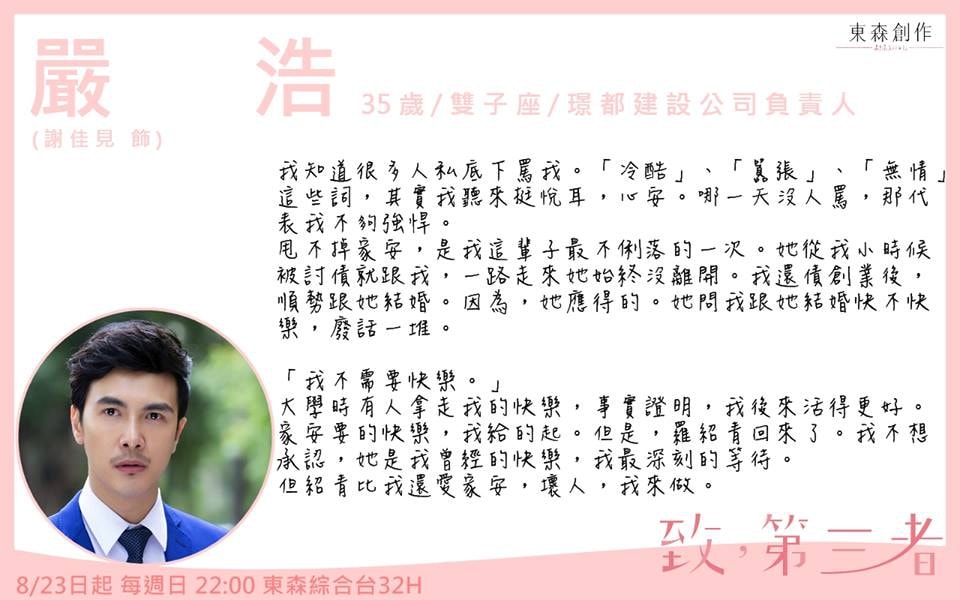 東森創作
嚴 浩
35歲/雙子座/璟都建設公司負責人
(謝佳見 飾)
我知道很多人私底下罵我。「冷酷」、「囂張」、「無情」
這些詞，其實我聽來挺悅耳，心安。哪一天沒人罵，那代
表我不夠強悍。
甩不掉家安，是我這輩子最不俐落的一次。她從我小時候
被討債就跟我，一路走來她始終沒離開。我還債創業後，
順勢跟她結婚。因為，她應得的。她問我跟她結婚快不快
樂，廢話一堆。
「我不需要快樂。」
大學時有人拿走我的快樂，事實證明，我後來活得更好。
家安要的快樂，我給的起。但是，羅紹青回來了。我不想
承認，她是我曾經的快樂，我最深刻的等待。
但紹青比我還愛家安，壞人，我來做。
致，第三者
8/23日起 每週日 22:00 東森綜合台32H